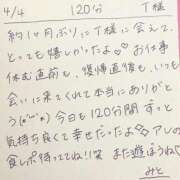 4/4 120分 T様
約1ヶ月ぶりにT様に会えて、
とっても嬉しかったよ♡ お仕事
休む直前も、復帰直後も、いつも
会いに来てくれて本当にありがと
う(*´ω`*) 今日も120分間ずっと
気持ち良くて幸せだったよ♡アレの
食レポ待っててね!!笑 また遊ぼうね♡
みと